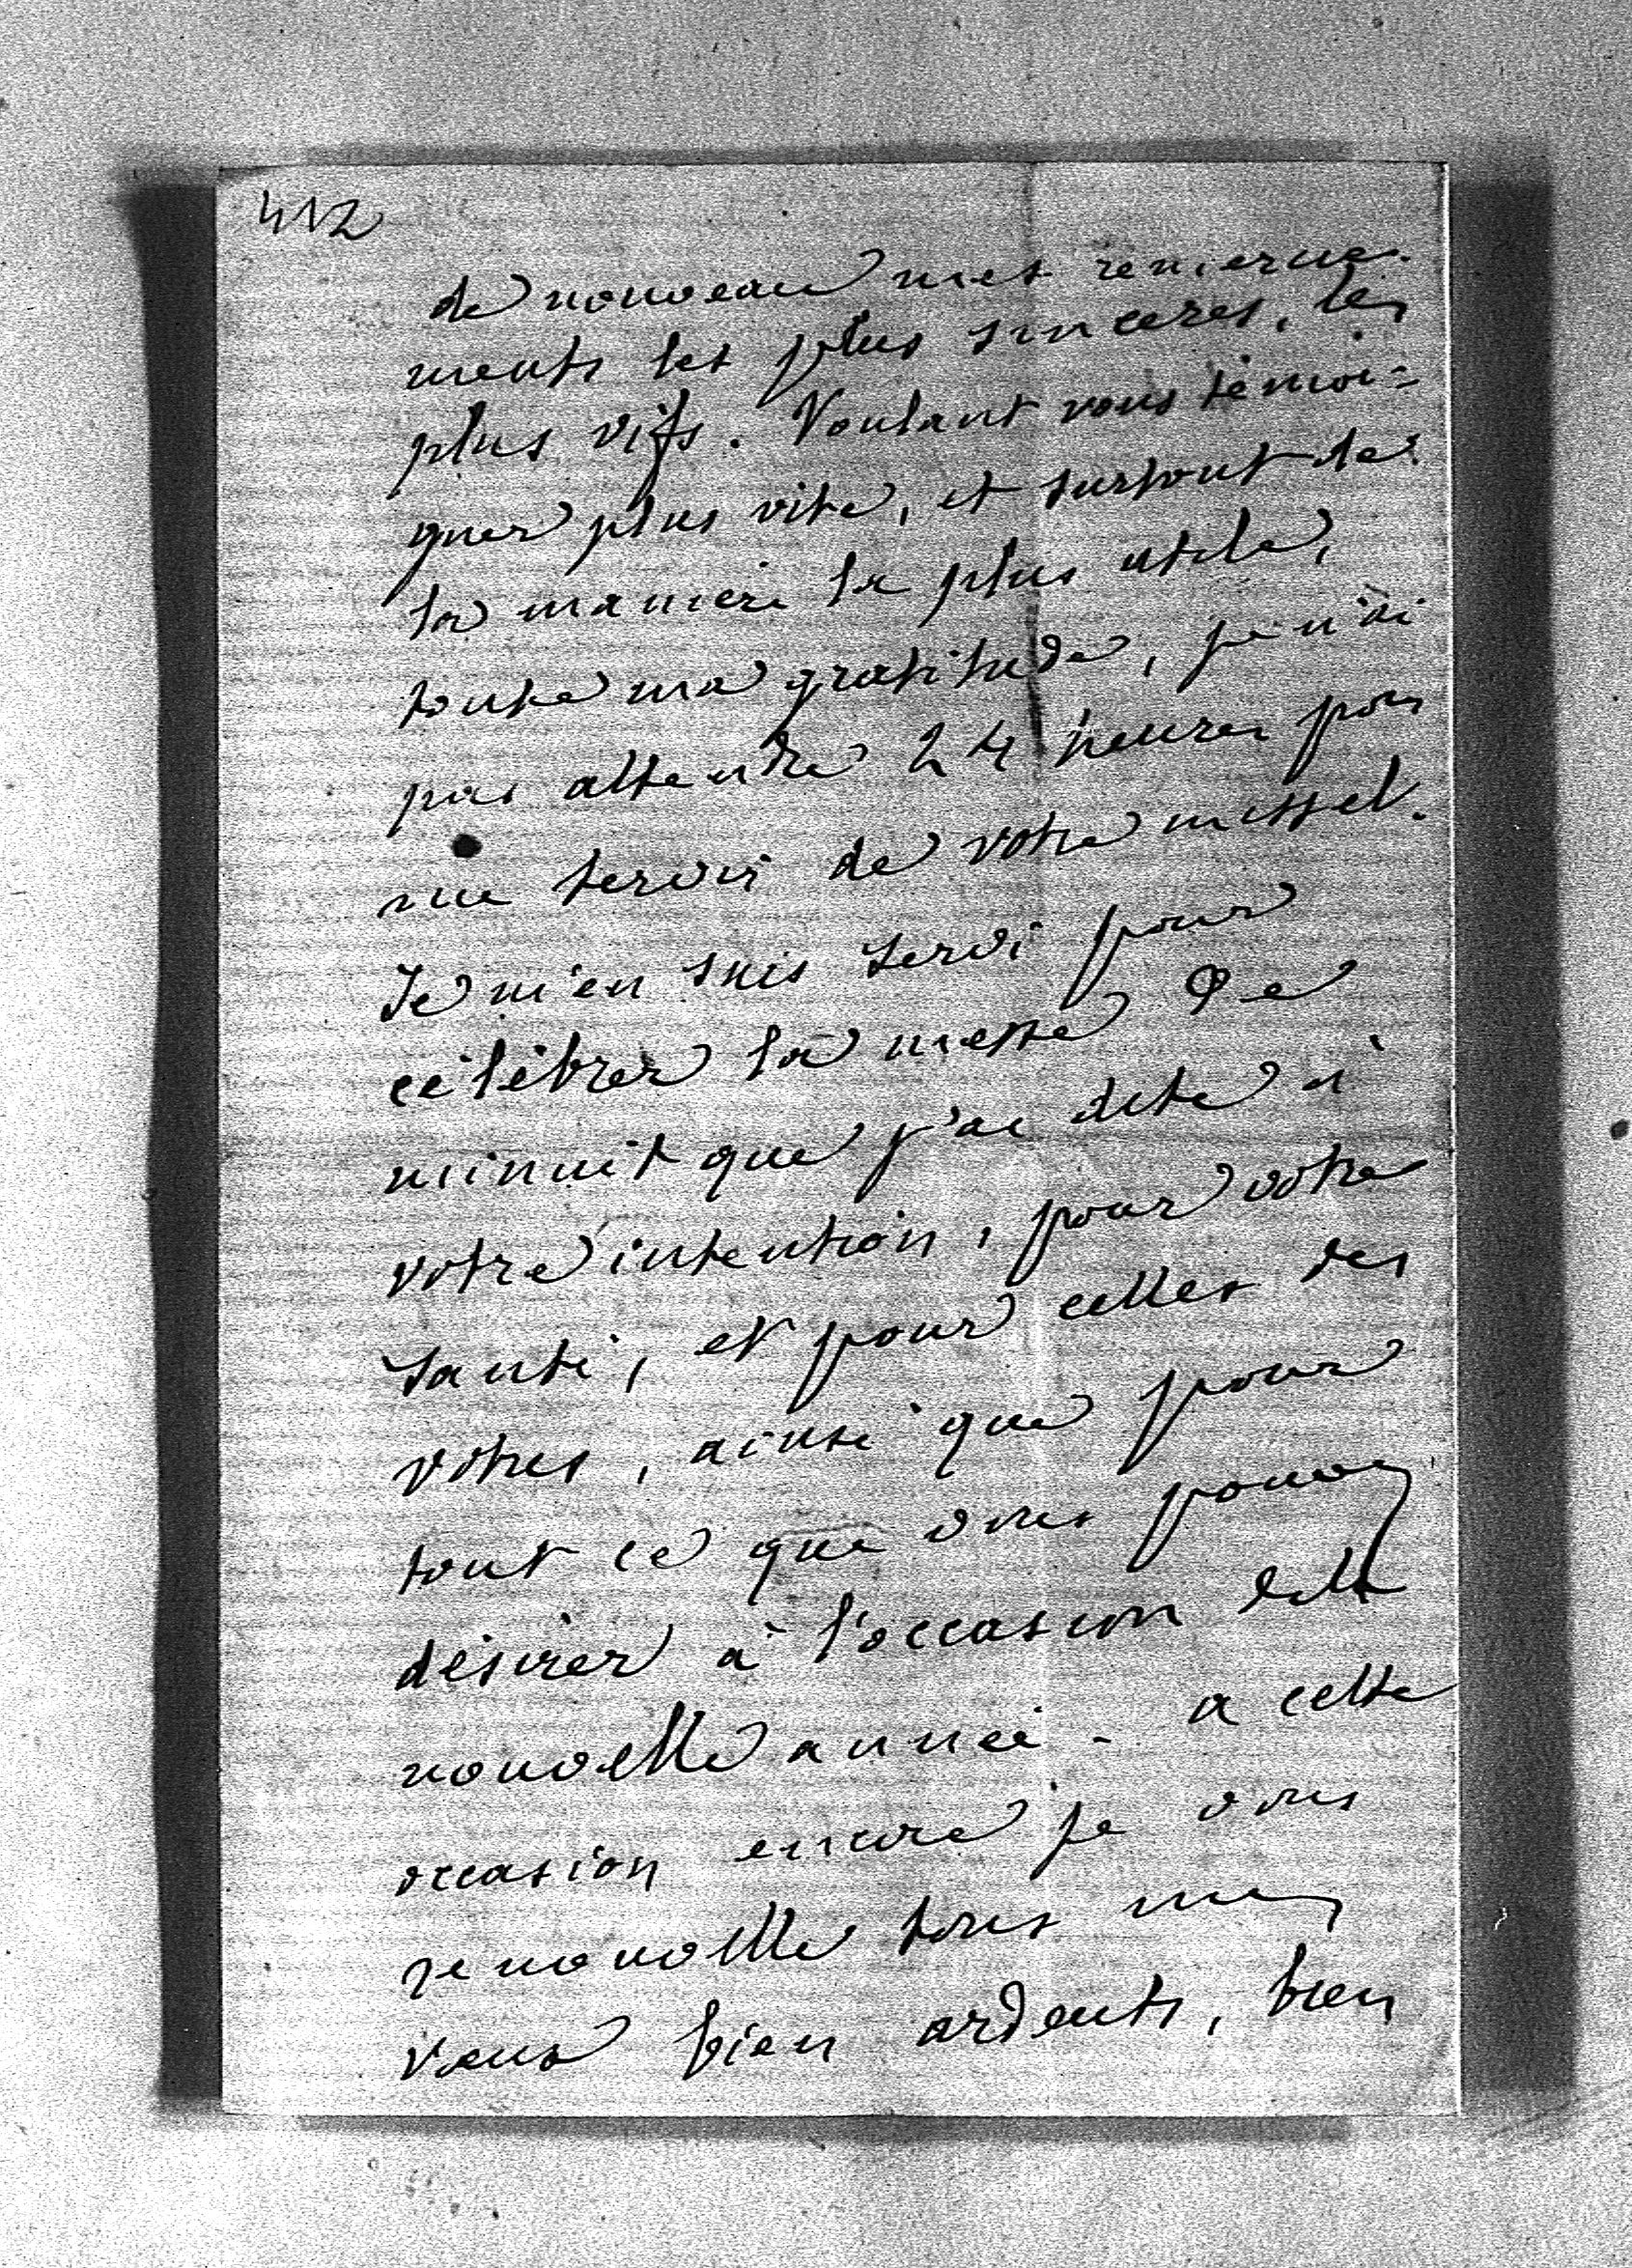 412
de nouveau mes remercie-
ments les plus sincères, les
plus vifs. Voulant vous témoi=
gner plus vite, et surtout de
la manière la plus utile,
toute ma gratitude, je n'ai
pas attendre 24 heures pour
me servir de votre missel.
Je m'en suis servi pour
célébrer la messe de
minuit que j'ai dite à
votre intention, pour votre
santé, et pour celles des
vôtres, ainsi que pour
tout ce que vous pouvez
désirer à l'occasion de la
nouvelle année - a cette
occasion encore je vous
renouvelle tous mes
vœux bien ardents, bien